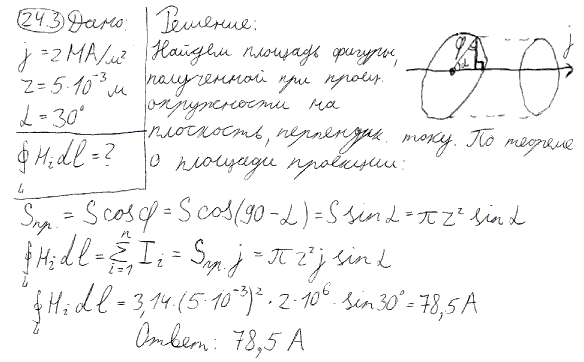 24.3 Дано: Решение:
j = 2 МА/м²
r = 5·10⁻³ м
α = 30°
∮_L H_i dl = ?
Найдем площадь фигуры,
полученной при проец.
окружности на
плоскость, перпендик. току. По теореме
о площади проекции:
φ α j
S_пр. = S cos φ = S cos(90 - α) = S sin α = π r² sin α
∮_L H_i dl = Σ_{i=1}^{n} I_i = S_пр. j = π r² j sin α
∮_L H_i dl = 3,14·(5·10⁻³)²·2·10⁶·sin 30° = 78,5 А
Ответ: 78,5 А